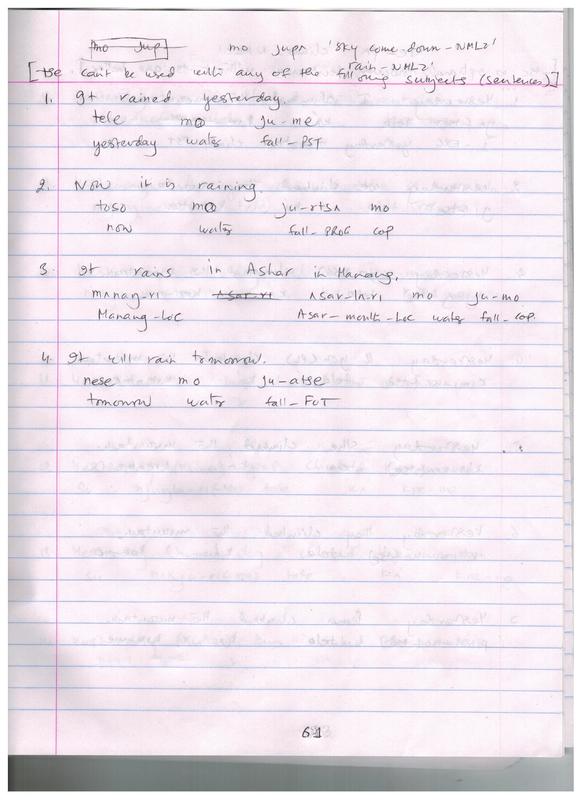 mo jup mo jupʌ 'sky come-down-NMLZ'
rain-NMLZ'
[tse can't be used with any of the following subjects (sentences)]
1. It rained yesterday.
tele mo ju-me
yesterday water fall-PST
2. Now it is raining.
toso mo ju-rtsʌ mo
now water fall-PROG COP
3. It rains in Ashar in Manang.
mʌnaŋ-ri ʌsar-ri ʌsar-la-ri mo ju-mo
Manang-LOC Asar-month-LOC water fall-COP.
4. It will rain tomorrow.
nese mo ju-atse
tomorrow water fall-FUT
61